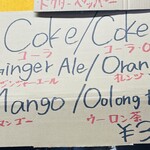 ドクターペッパー
Coke/Coke
コーラ コーラ・0
Ginger Ale/Oran
ジンジャーエール オレンジ
Mango/Oolong
マンゴー ウーロン茶
¥3